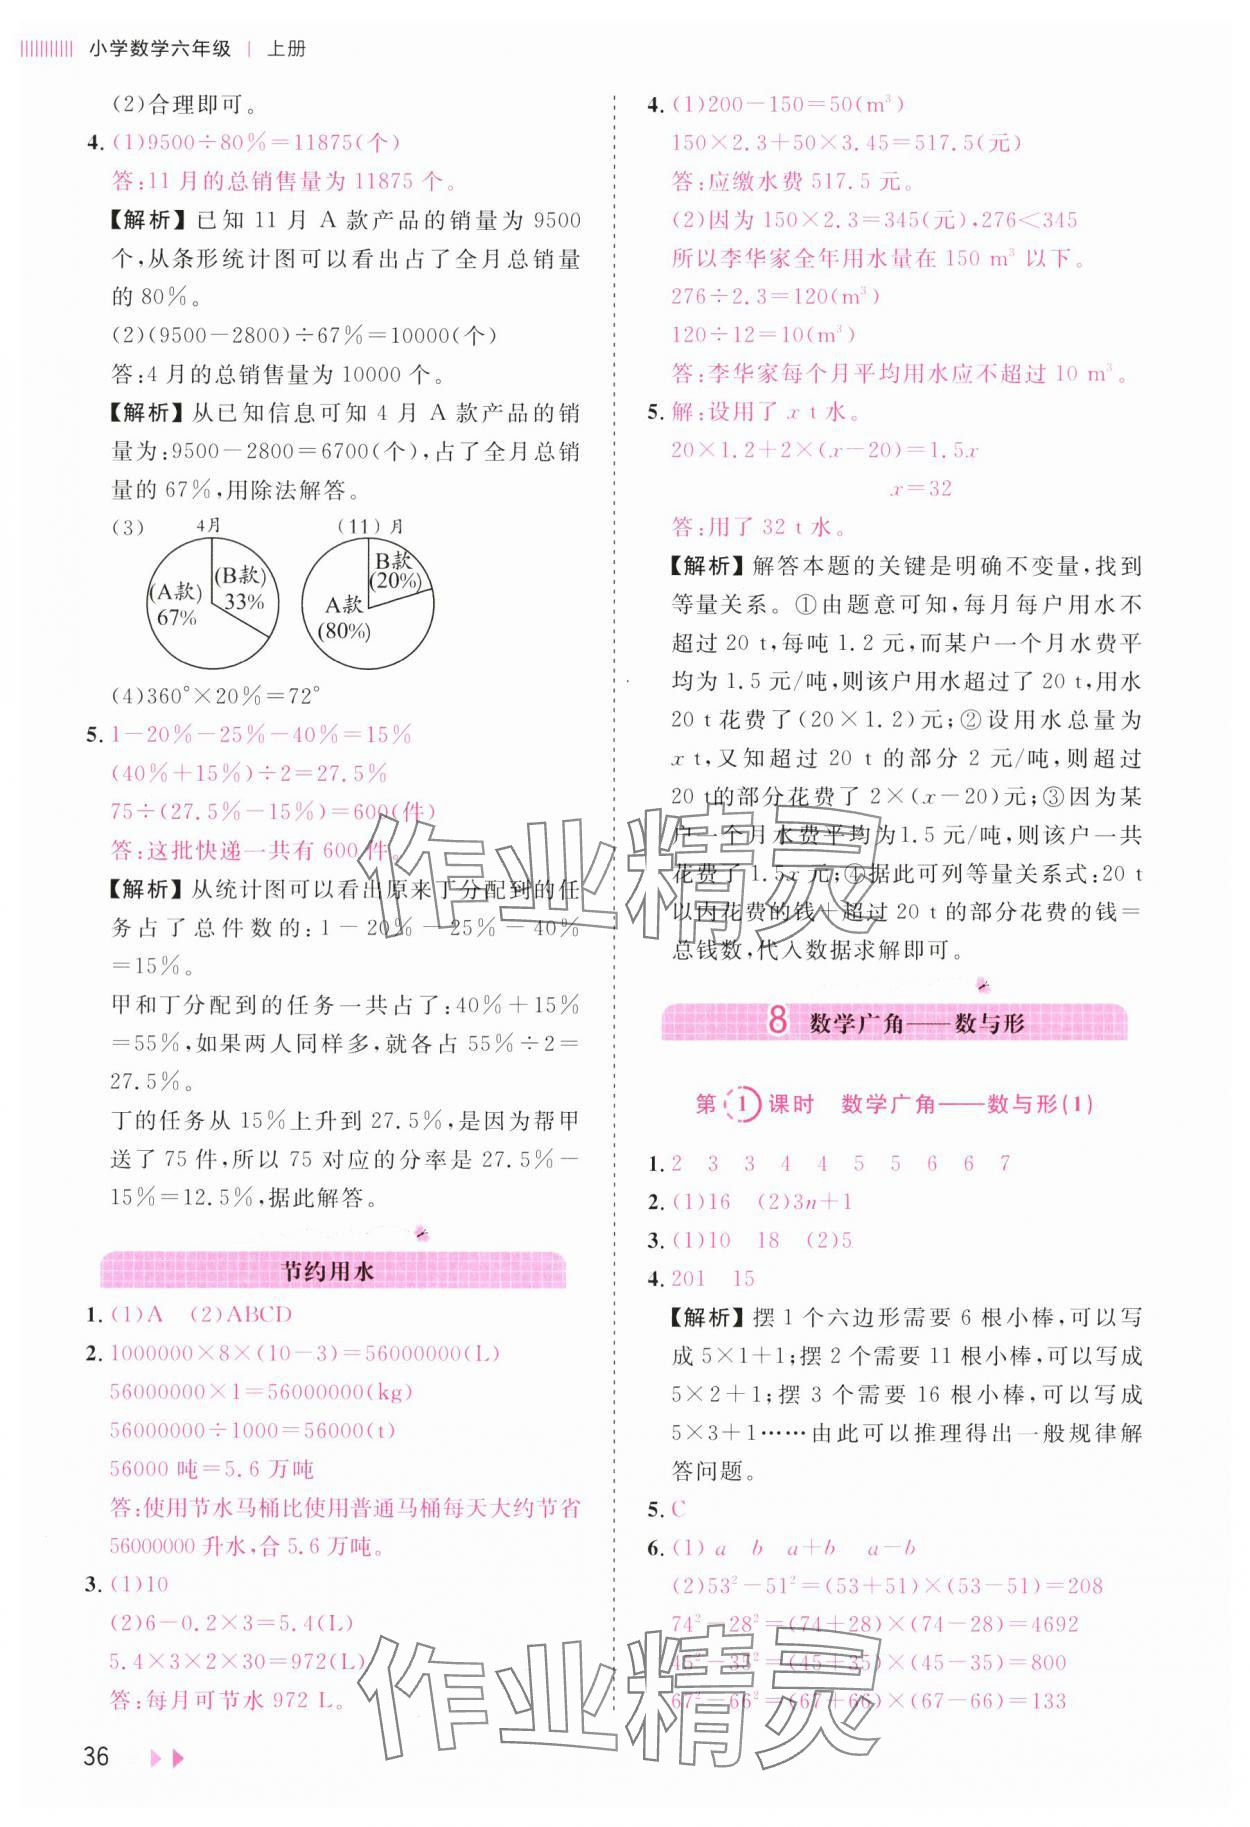 小学数学六年级 | 上册
(2)合理即可。
4. (1)9500÷80％=11875(个)
答:11 月的总销售量为 11875 个。
【解析】已知 11 月 A 款产品的销量为 9500
个,从条形统计图可以看出占了全月总销量
的 80％。
(2)(9500-2800)÷67％=10000(个)
答:4 月的总销售量为 10000 个。
【解析】从已知信息可知 4 月 A 款产品的销
量为:9500-2800=6700(个),占了全月总销
量的 67％,用除法解答。
(3) 4月 (11)月
(A款) 67% (B款) 33%
A款 (80%) B款 (20%)
(4)360°×20％=72°
5. 1-20％-25％-40％=15％
(40％+15％)÷2=27.5％
75÷(27.5％-15％)=600(件)
答:这批快递一共有 600 件。
【解析】从统计图可以看出原来丁分配到的任
务占了总件数的:1-20％-25％-40％
=15％。
甲和丁分配到的任务一共占了:40％+15％
=55％,如果两人同样多,就各占 55％÷2=
27.5％。
丁的任务从 15％上升到 27.5％,是因为帮甲
送了 75 件,所以 75 对应的分率是 27.5％-
15％=12.5％,据此解答。
节约用水
1. (1)A (2)ABCD
2. 1000000×8×(10-3)=56000000(L)
56000000×1=56000000(kg)
56000000÷1000=56000(t)
56000 吨=5.6 万吨
答:使用节水马桶比使用普通马桶每天大约节省
56000000 升水,合 5.6 万吨。
3. (1)10
(2)6-0.2×3=5.4(L)
5.4×3×2×30=972(L)
答:每月可节水 972 L。
36
4. (1)200-150=50(m³)
150×2.3+50×3.45=517.5(元)
答:应缴水费 517.5 元。
(2)因为 150×2.3=345(元),276<345
所以李华家全年用水量在 150 m³ 以下。
276÷2.3=120(m³)
120÷12=10(m³)
答:李华家每个月平均用水应不超过 10 m³。
5. 解:设用了 x t 水。
20×1.2+2×(x-20)=1.5x
x=32
答:用了 32 t 水。
【解析】解答本题的关键是明确不变量,找到
等量关系。①由题意可知,每月每户用水不
超过 20 t,每吨 1.2 元,而某户一个月水费平
均为 1.5 元/吨,则该户用水超过了 20 t,用水
20 t花费了(20×1.2)元;②设用水总量为
x t,又知超过 20 t 的部分 2 元/吨,则超过
20 t的部分花费了 2×(x-20)元;③因为某
户一个月水费平均为1.5 元/吨,则该户一共
花费了 1.5x 元;④据此可列等量关系式:20 t
以内花费的钱+超过 20 t 的部分花费的钱=
总钱数,代入数据求解即可。
8 数学广角——数与形
第 1 课时 数学广角——数与形(1)
1. 2 3 3 4 4 5 5 6 6 7
2. (1)16 (2)3n+1
3. (1)10 18 (2)5
4. 201 15
【解析】摆 1 个六边形需要 6 根小棒,可以写
成 5×1+1;摆 2 个需要 11 根小棒,可以写成
5×2+1;摆 3 个需要 16 根小棒,可以写成
5×3+1……由此可以推理得出一般规律解
答问题。
5. C
6. (1) a b a+b a-b
(2)53²-51²=(53+51)×(53-51)=208
74²-28²=(74+28)×(74-28)=4692
45²-35²=(45+35)×(45-35)=800
67²-66²=(67+66)×(67-66)=133
作业精灵
作业精灵